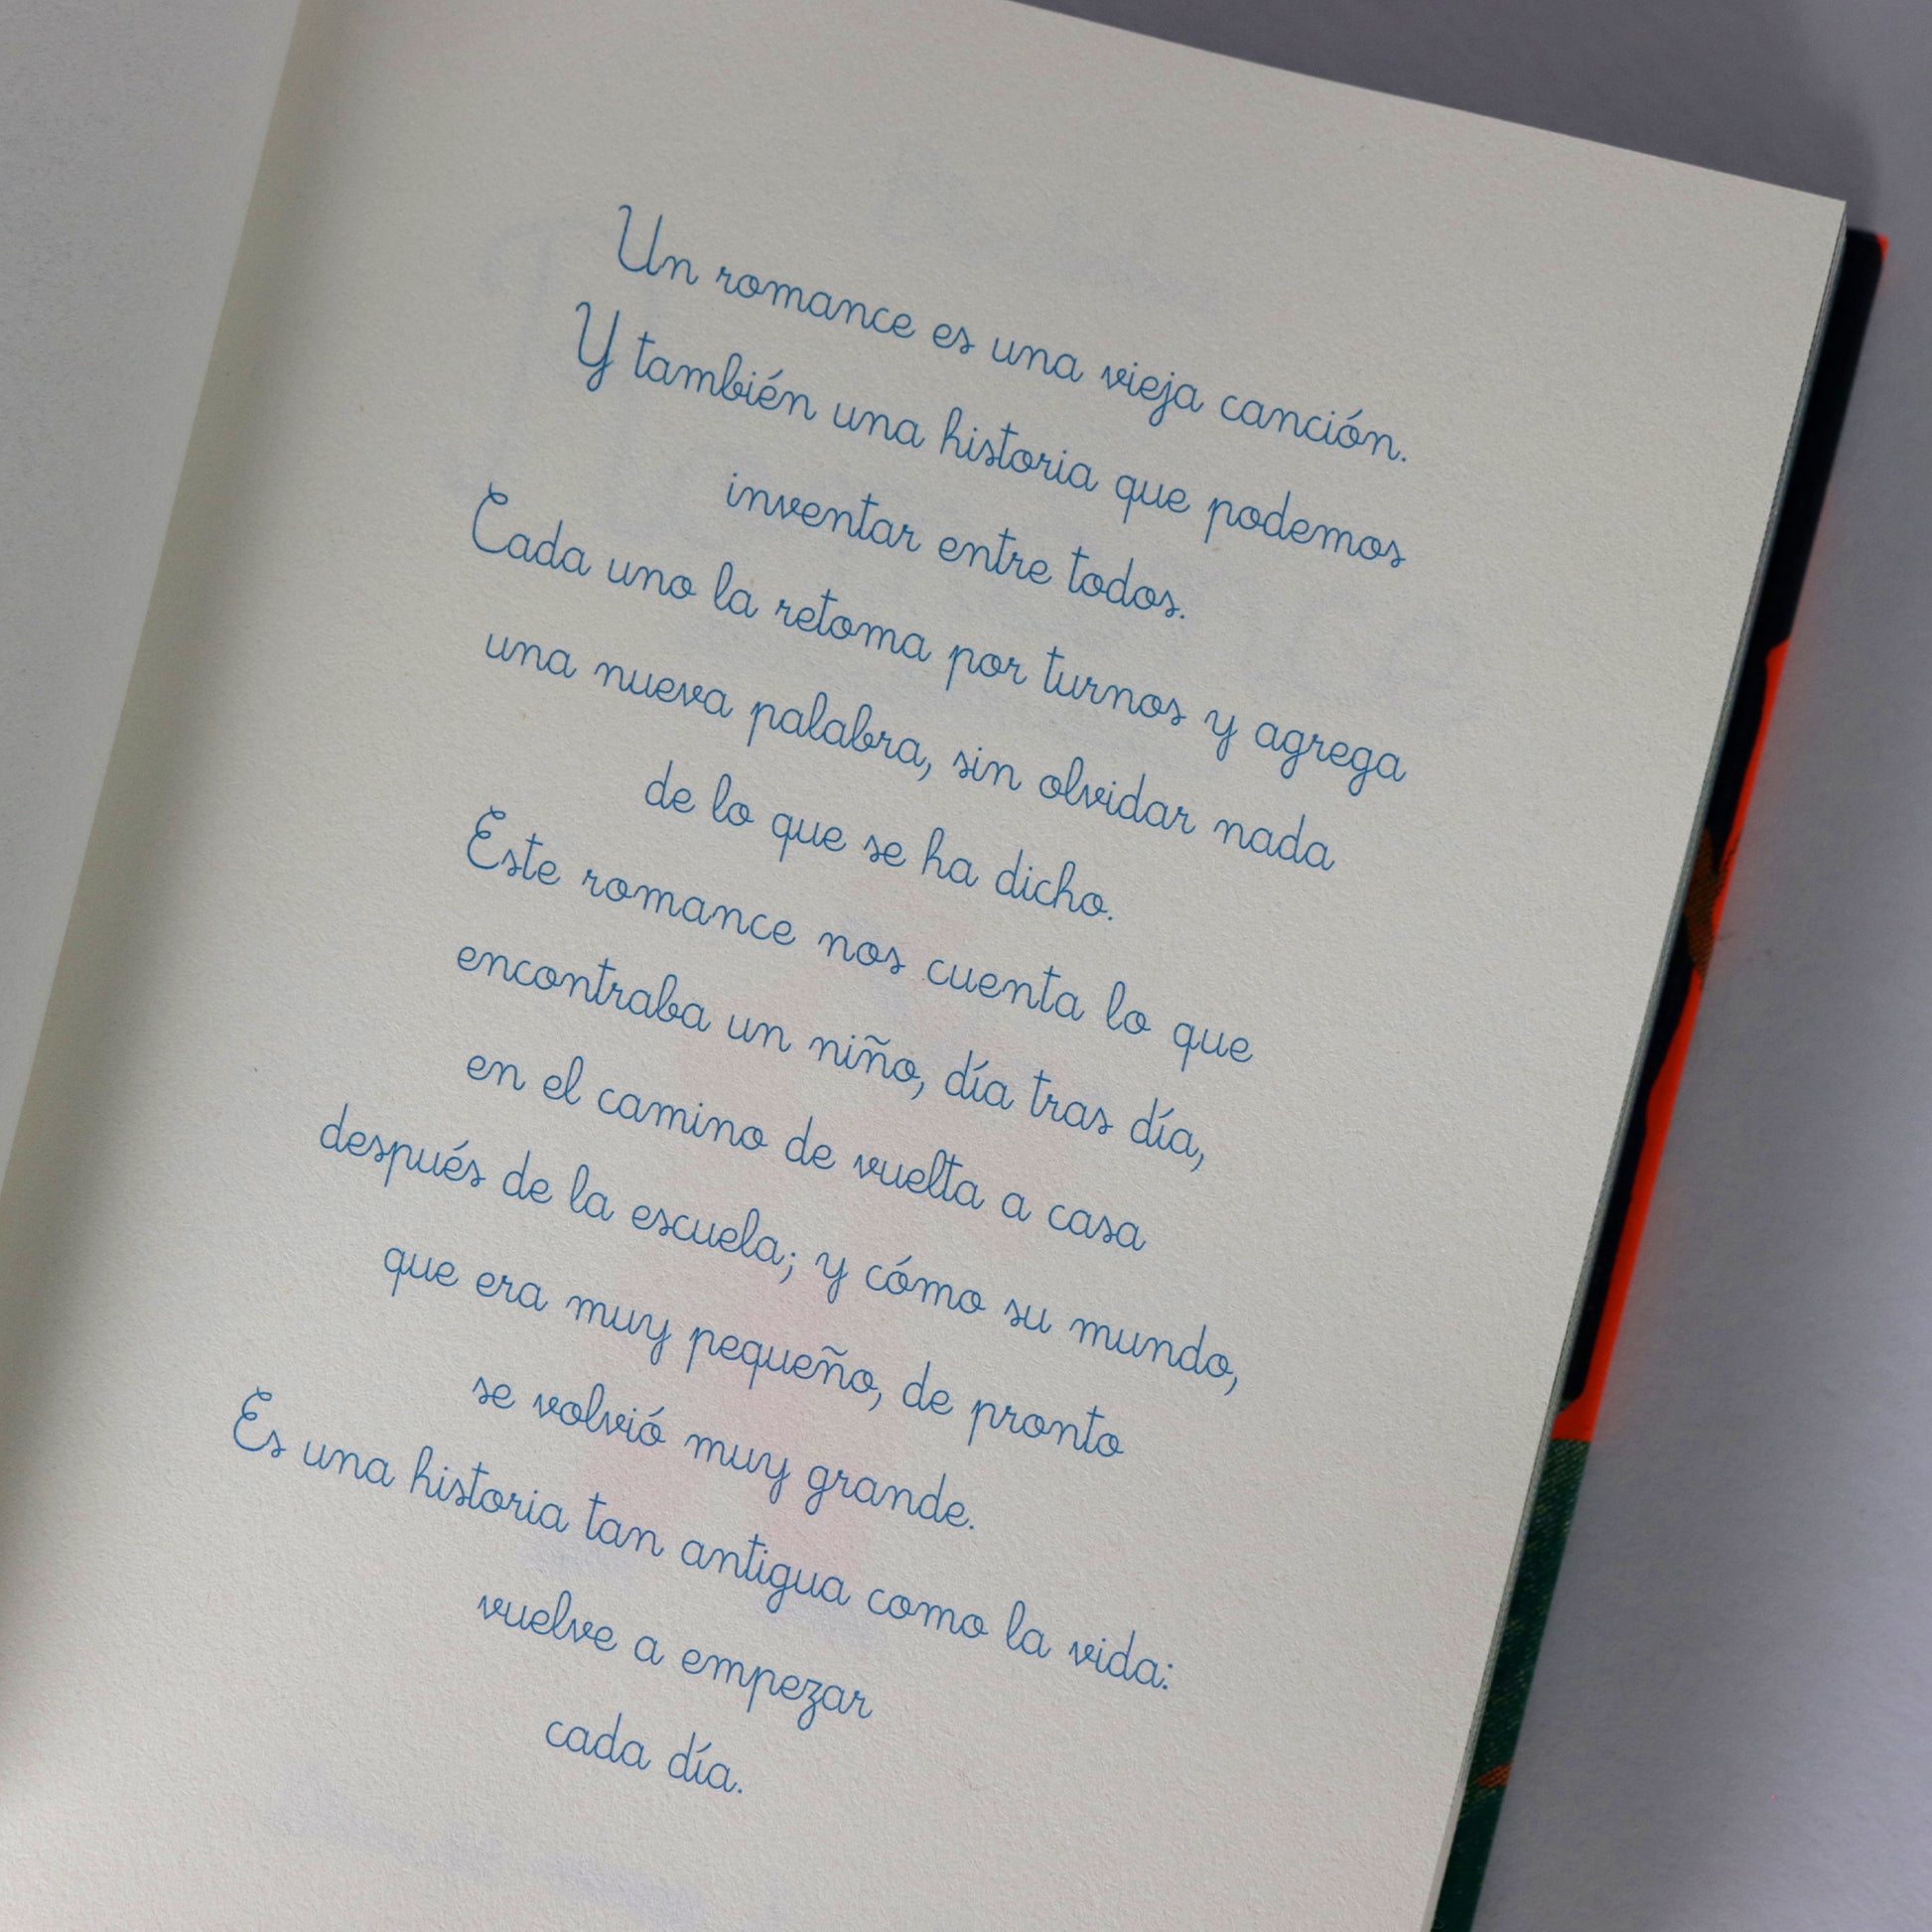 Un romance es una vieja canción.
Y también una historia que podemos
inventar entre todos.
Cada uno la retoma por turnos y agrega
una nueva palabra, sin olvidar nada
de lo que se ha dicho.
Este romance nos cuenta lo que
encontraba un niño, día tras día,
en el camino de vuelta a casa
después de la escuela; y cómo su mundo,
que era muy pequeño, de pronto
se volvió muy grande.
Es una historia tan antigua como la vida:
vuelve a empezar
cada día.